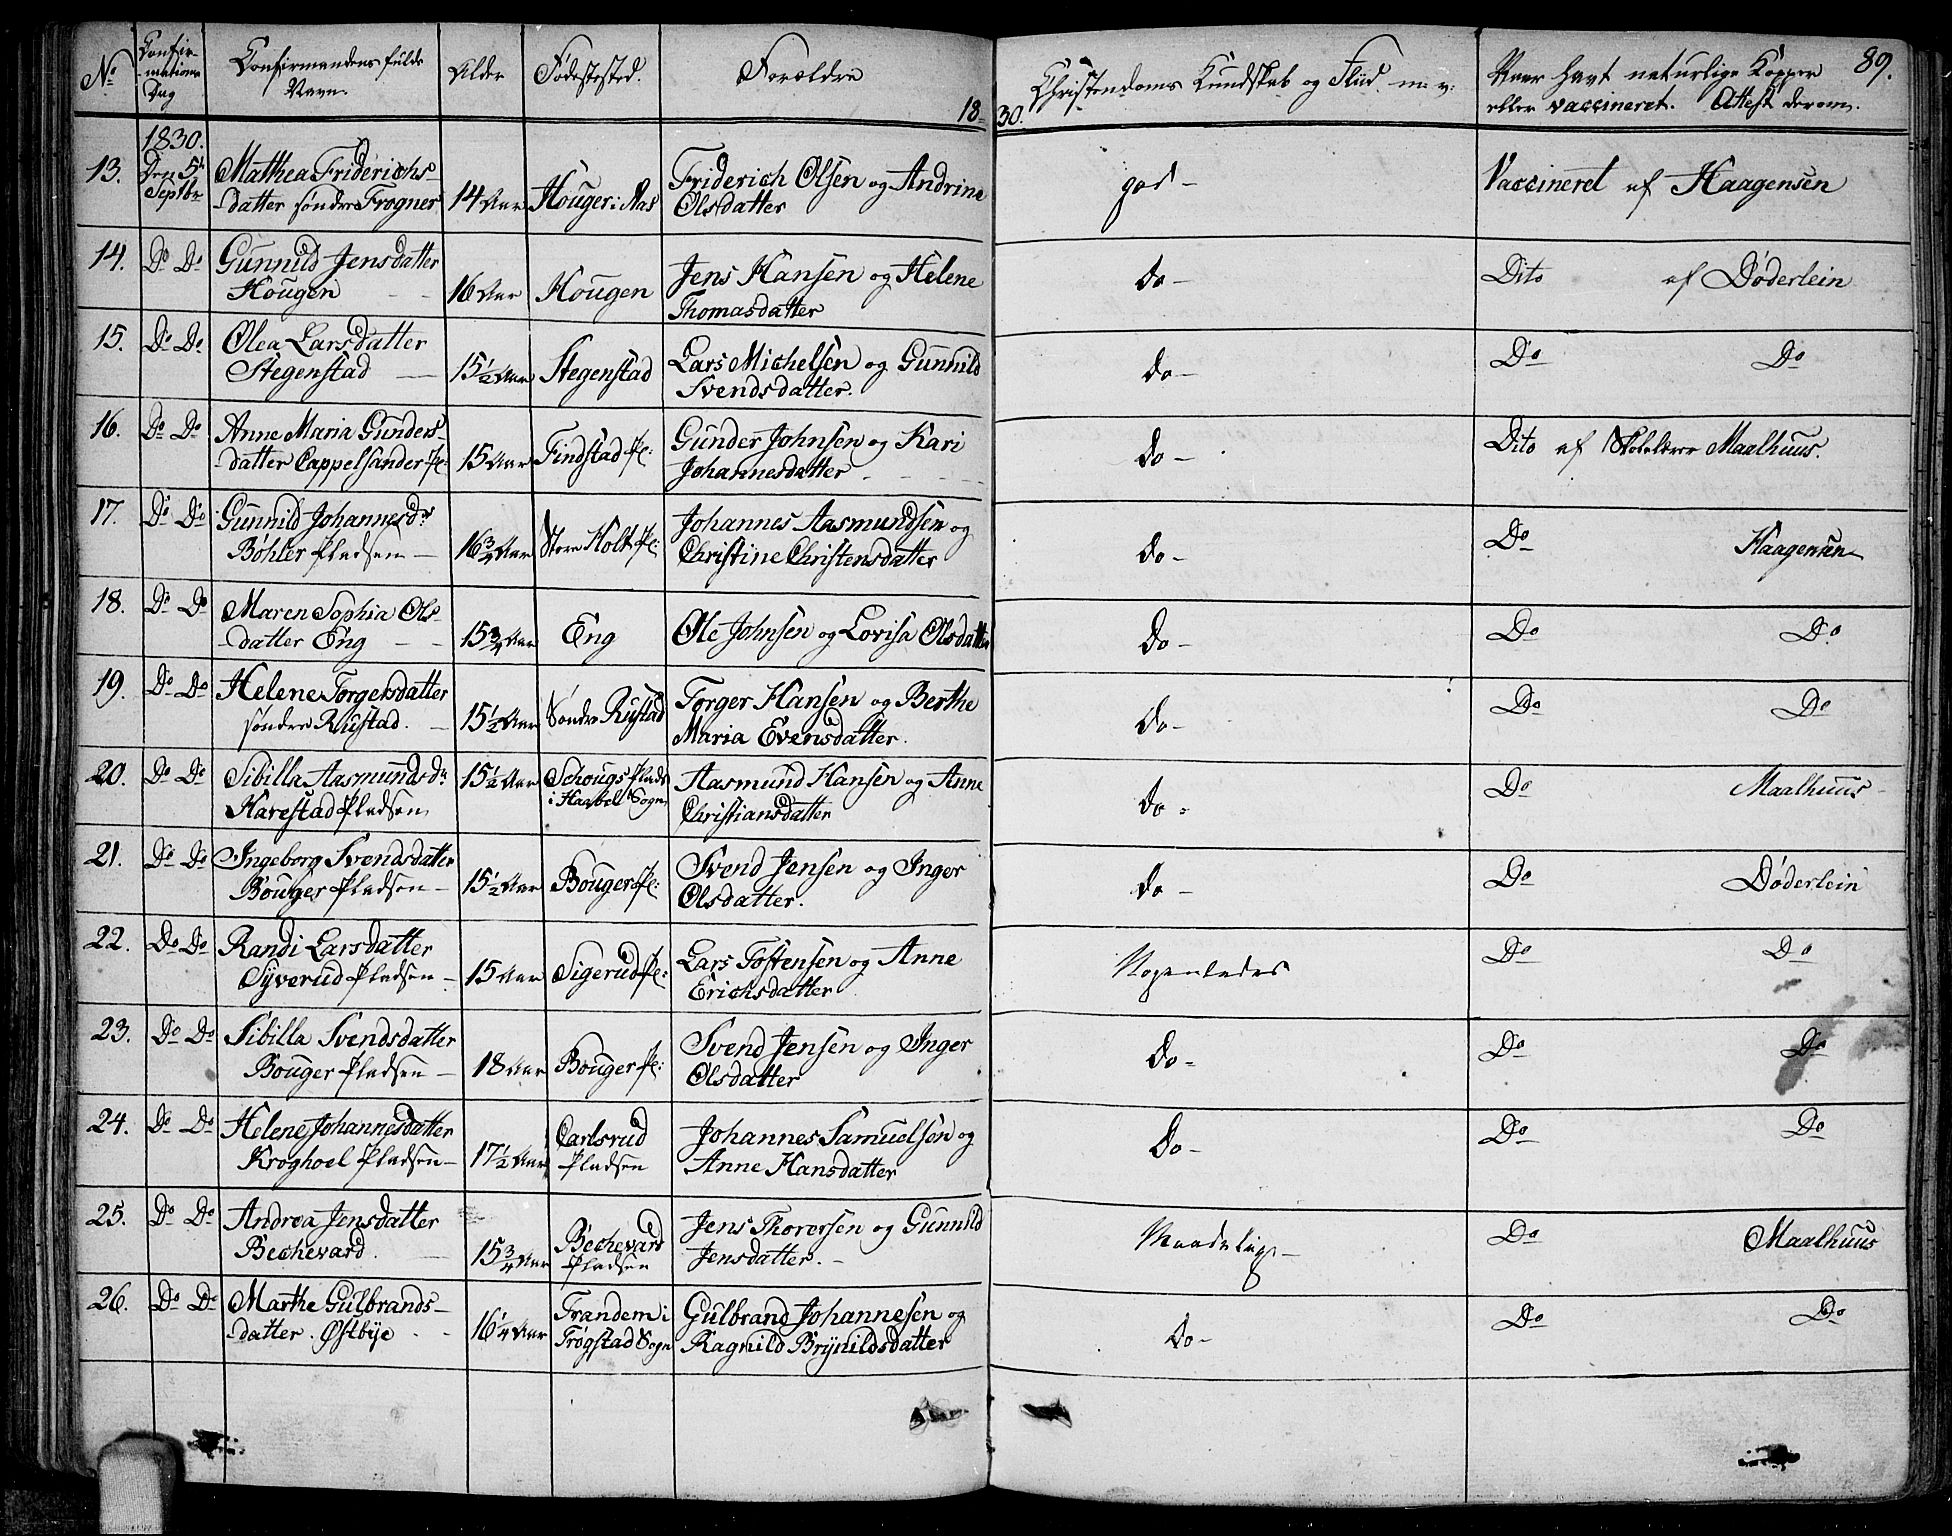 89.
No Confir-mations Dag Confirmandens fulde Navn. Alder Fødestested. Forældre Christendoms Kundskab og Flid m: v: Naar havt naturlige Kopper eller vaccineret. Attest derom.
18 30.
1830.
13. Den 5te Septbr Matthea Friderichs- 14 Aar Houger i Aas Friderich Olsen og Andrine god - Vaccineret af Haagensen
-datter søndre Frogner Olsdatter
14. Do Do Gunnild Jensdatter 16 Aar Hougen Jens Hansen og Helene do - Dito af Døderlein
Hougen Thomasdatter
15. Do Do Olea Larsdatter 15½ Aar Stegenstad Lars Michelsen og Gunnild do - Do Do
Stegenstad Svendsdatter.
16. Do Do Anne Maria Gunders- 15 Aar Findstad Pl: Gunder Johnsen og Kari do - Dito af Skolelærer Maalhuus.
-datter Cappelsander Pl: Johannesdatter
17. Do Do Gunnild Johannesdr 16¾ Aar Store Holt Pl: Johannes Aasmundsen og do - Do Haagensen
Bøhler Pladsen Christine Christensdatter
18. Do Do Maren Sophia Ols- 15¾ Aar Eng Ole Johnsen og Lovisa Olsdatter do - Do Do
-datter Eng
19. Do Do Helene Torgersdatter 15½ Aar Søndre Rustad Torger Hansen og Berthe do - Do Do
søndre Rustad. Maria Evensdatter.
20. Do Do Sibilla Aasmundsdr 15½ Aar Schougs Plads Aasmund Hansen og Anne do - Do Maalhuus
Harestad Pladsen i Haabel Sogn Christiansdatter
21. Do Do Ingeborg Svendsdatter 15½ Aar Bouger Pl: Svend Jensen og Inger do - Do Døderlein
Bouger Pladsen Olsdatter.
22. Do Do Randi Larsdatter 15 Aar Sigerud Pl: Lars Tostensen og Anne Nogenledes Do Do
Syverud Pladsen Erichsdatter
23. Do Do Sibilla Svendsdatter 18 Aar Bouger Pl: Svend Jensen og Inger do - Do Do
Bouger Pladsen Olsdatter
24. Do Do Helene Johannesdatter 17½ Aar Carlsrud Johannes Samuelsen og do - Do Do
Kroghoel Pladsen Pladsen Anne Hansdatter
25. Do Do Andrea Jensdatter 15¾ Aar Bechevard Jens Thorersen og Gunnild Maadelig - Do Maalhuus
Bechevard. Pladsen Jensdatter.
26. Do Do Marthe Gulbrands- 16¼ Aar Frandem i Gulbrand Johannesen og do - Do Do
-datter. Østbye Trøgstad Sogn Ragnild Brynildsdatter